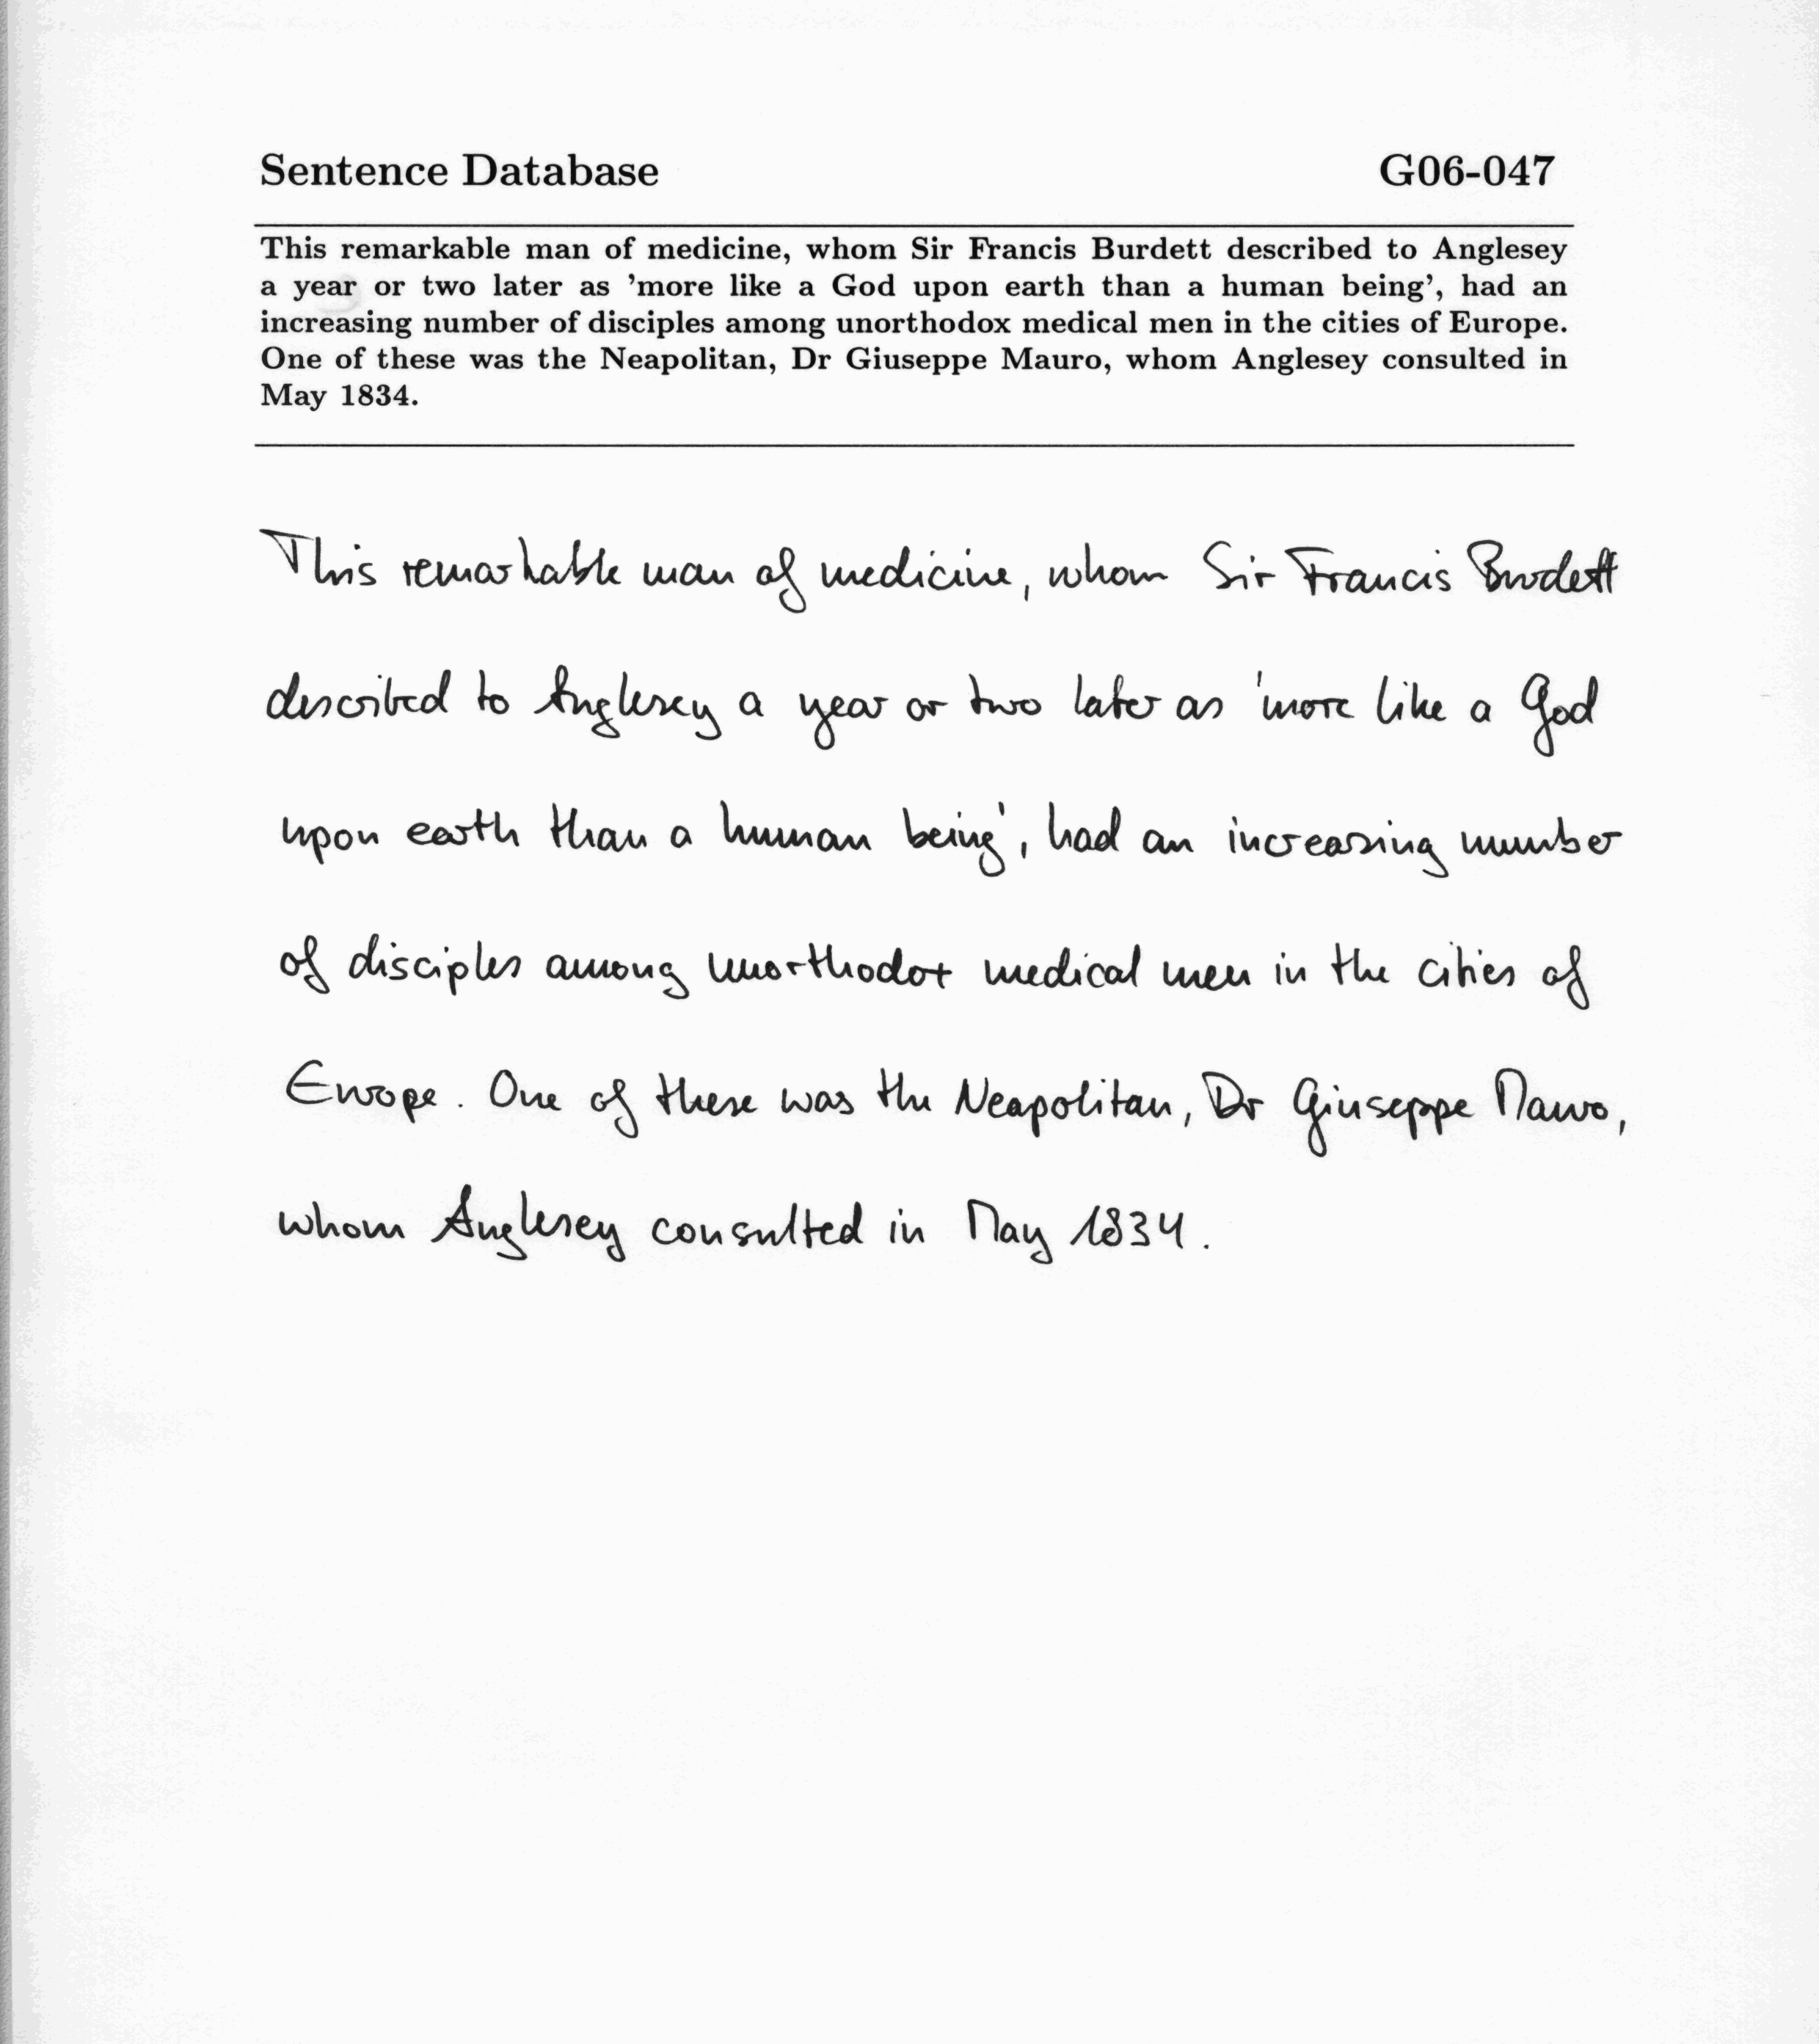 Sentence Database G06-047
This remarkable man of medicine, whom Sir Francis Burdett described to Anglesey
a year or two later as 'more like a God upon earth than a human being', had an
increasing number of disciples among unorthodox medical men in the cities of Europe.
One of these was the Neapolitan, Dr Giuseppe Mauro, whom Anglesey consulted in
May 1834.
This remarkable man of medicine, whom Sir Francis Burdett
described to Anglesey a year or two later as 'more like a God
upon earth than a human being', had an increasing number
of disciples among unorthodox medical men in the cities of
Europe. One of these was the Neapolitan, Dr Giuseppe Mauro,
whom Anglesey consulted in May 1834.